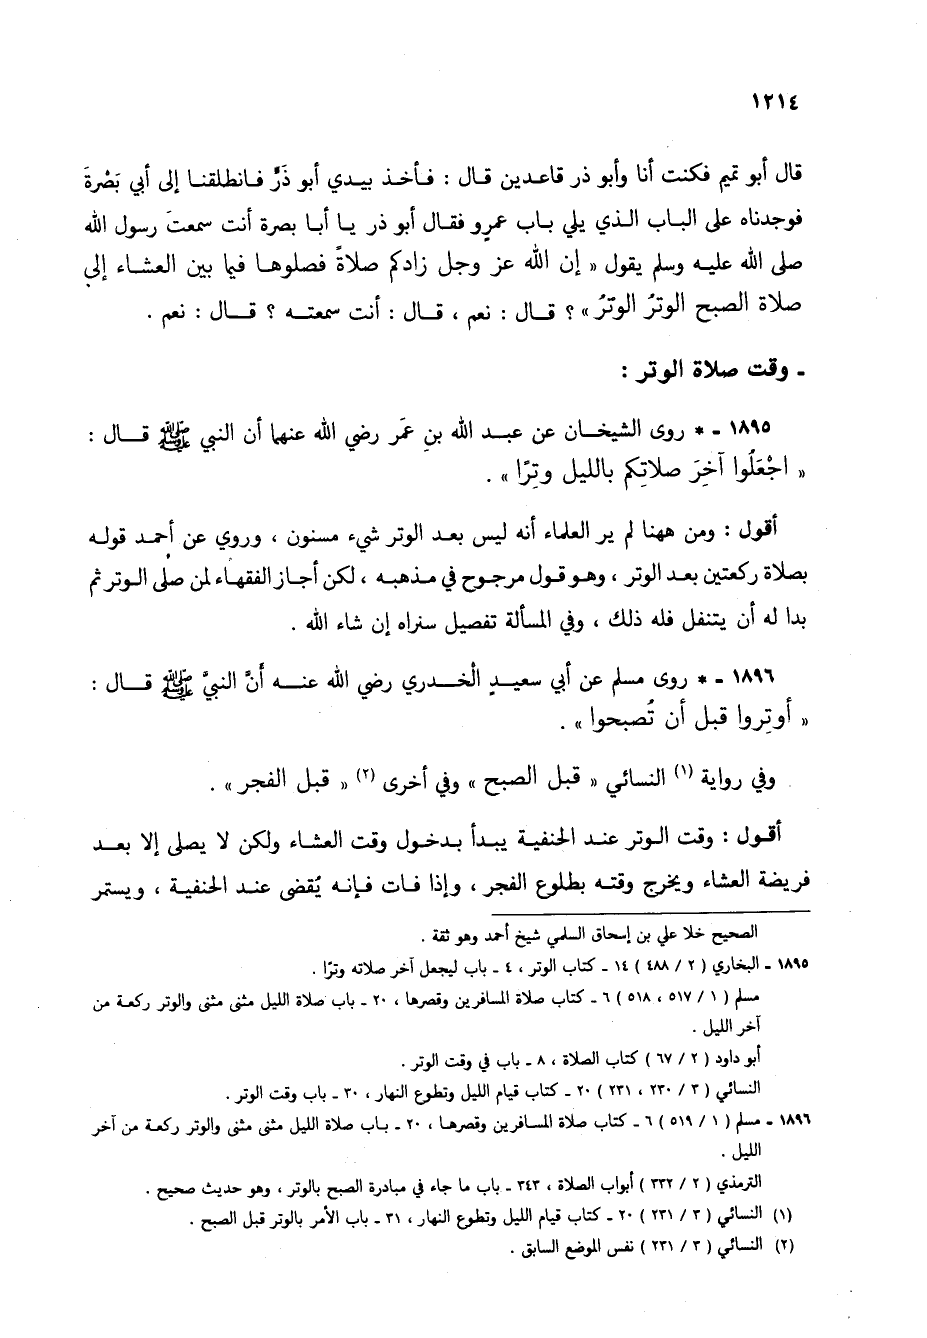 ١٢١٤
قال أبو تميم فكنت أنا وأبو ذر قاعدين قال : فأخذ بيدي أبو ذَرٍّ فانطلقنا إلى أبي بَصْرةَ
فوجدناه على الباب الذي يلي باب عمرٍو فقال أبو ذر يا أبا بصرة أنت سمعتَ رسول الله
صلى الله عليه وسلم يقول « إن الله عز وجل زادكم صلاةً فصلوها فيما بين العشاء إلى
صلاة الصبح الوترُ الوترُ » ؟ قال : نعم ، قال : أنت سمعته ؟ قال : نعم .
ـ وقت صلاة الوتر :
١٨٩٥ ـ * روى الشيخان عن عبد الله بنِ عمَر رضي الله عنهما أن النبي ﷺ قال :
« اجْعَلُوا آخِرَ صلاتِكم بالليل وتِرًا » .
أقول : ومن ههنا لم ير العلماء أنه ليس بعد الوتر شيء مسنون ، وروي عن أحمد قوله
بصلاة ركعتين بعد الوتر ، وهو قول مرجوح في مذهبه ، لكن أجاز الفقهاء لمن صلى الوتر ثم
بدا له أن يتنفل فله ذلك ، وفي المسألة تفصيل سنراه إن شاء الله .
١٨٩٦ ـ * روى مسلم عن أبي سعيدٍ الْخدري رضي الله عنه أَنَّ النبيَّ ﷺ قال :
« أوتِروا قبل أن تُصبحوا » .
وفي رواية (١) النسائي « قبل الصبح » وفي أخرى (٢) « قبل الفجر » .
أقول : وقت الوتر عند الحنفية يبدأ بدخول وقت العشاء ولكن لا يصلى إلا بعد
فريضة العشاء ويخرج وقته بطلوع الفجر ، وإذا فات فإنه يُقضى عند الحنفية ، ويستمر
الصحيح خلا علي بن إسحاق السلمي شيخ أحمد وهو ثقة .
١٨٩٥ ـ البخاري ( ٢ / ٤٨٨ ) ١٤ ـ كتاب الوتر ، ٤ ـ باب ليجعل آخر صلاته وترًا .
مسلم ( ١ / ٥١٧ ، ٥١٨ ) ٦ ـ كتاب صلاة المسافرين وقصرها ، ٢٠ ـ باب صلاة الليل مثنى مثنى والوتر ركعة من
آخر الليل .
أبو داود ( ٢ / ٦٧ ) كتاب الصلاة ، ٨ ـ باب في وقت الوتر .
النسائي ( ٣ / ٢٣٠ ، ٢٣١ ) ٢٠ ـ كتاب قيام الليل وتطوع النهار ، ٣٠ ـ باب وقت الوتر .
١٨٩٦ ـ مسلم ( ١ / ٥١٩ ) ٦ ـ كتاب صلاة المسافرين وقصرها ، ٢٠ ـ باب صلاة الليل مثنى مثنى والوتر ركعة من آخر
الليل .
الترمذي ( ٢ / ٣٣٢ ) أبواب الصلاة ، ٣٤٣ ـ باب ما جاء في مبادرة الصبح بالوتر ، وهو حديث صحيح .
(١) النسائي ( ٣ / ٢٣١ ) ٢٠ ـ كتاب قيام الليل وتطوع النهار ، ٣١ ـ باب الأمر بالوتر قبل الصبح .
(٢) النسائي ( ٣ / ٢٣١ ) نفس الموضع السابق .